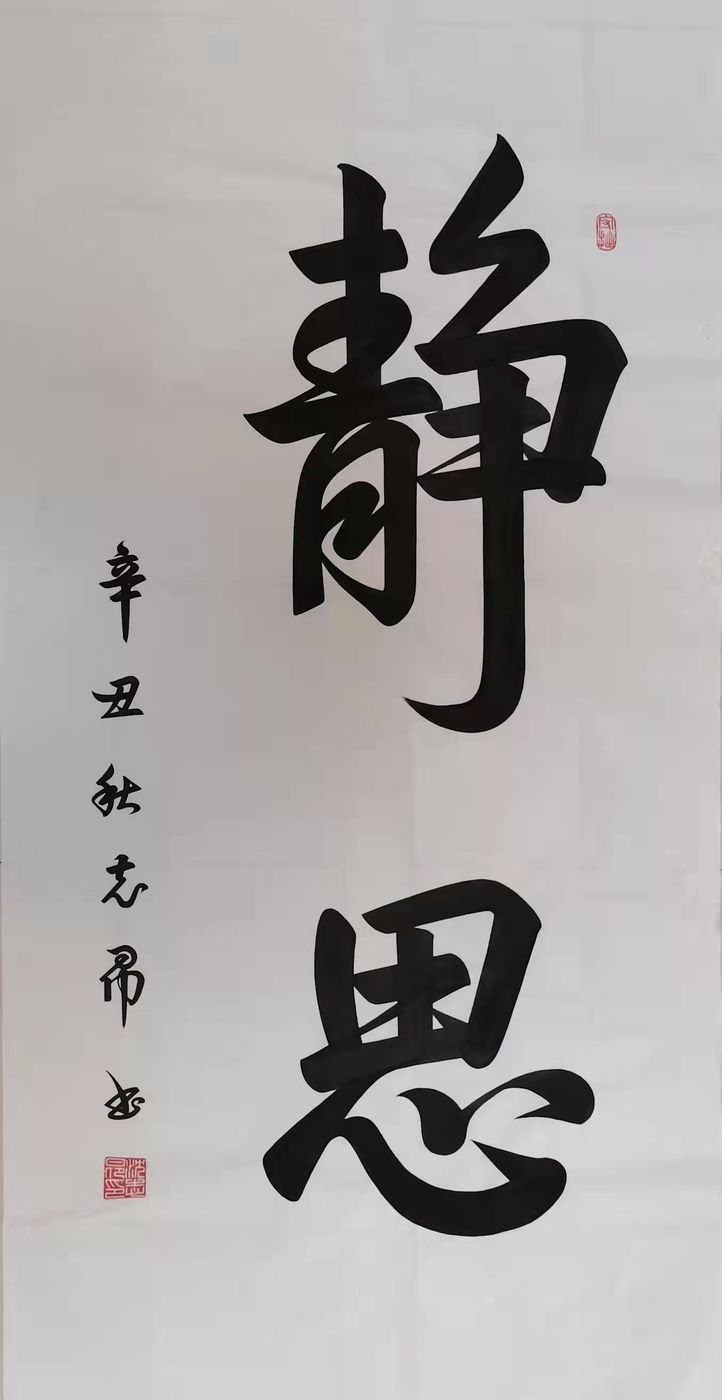 静思
辛丑秋志昂书